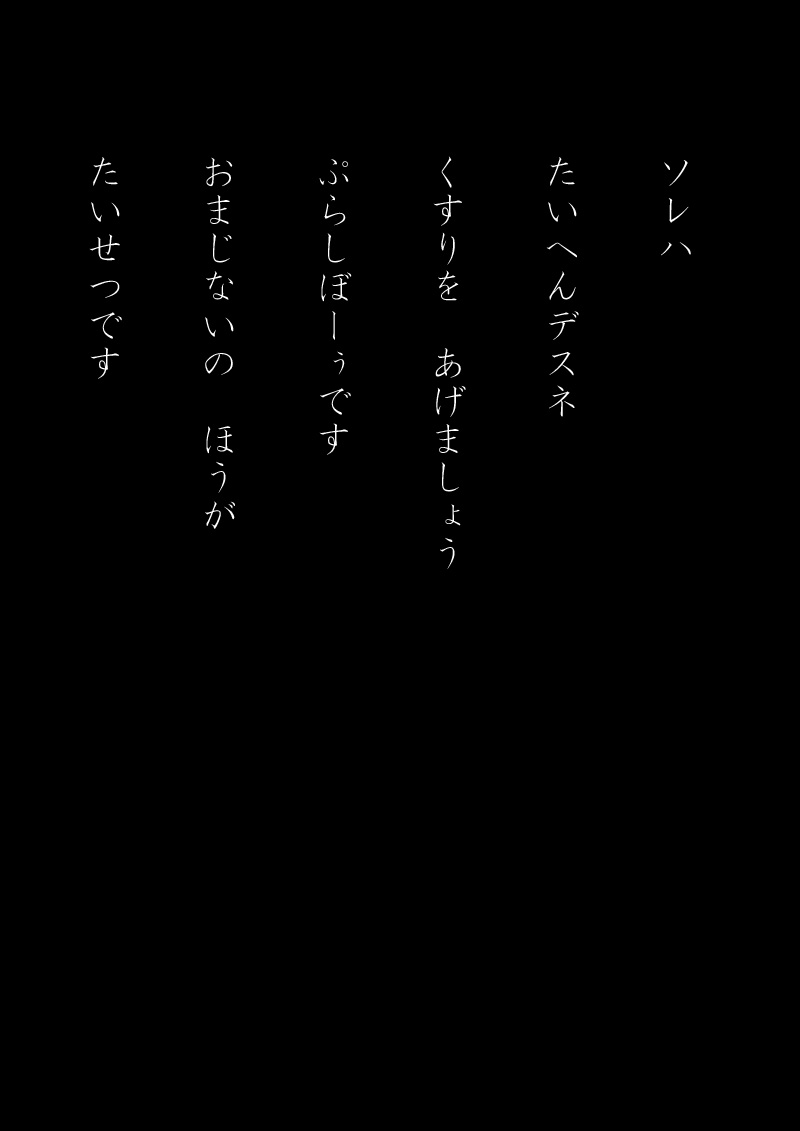 ソレハ
たいへんデスネ
くすりを　あげましょう
ぷらしぼーぅです
おまじないの　ほうが
たいせつです